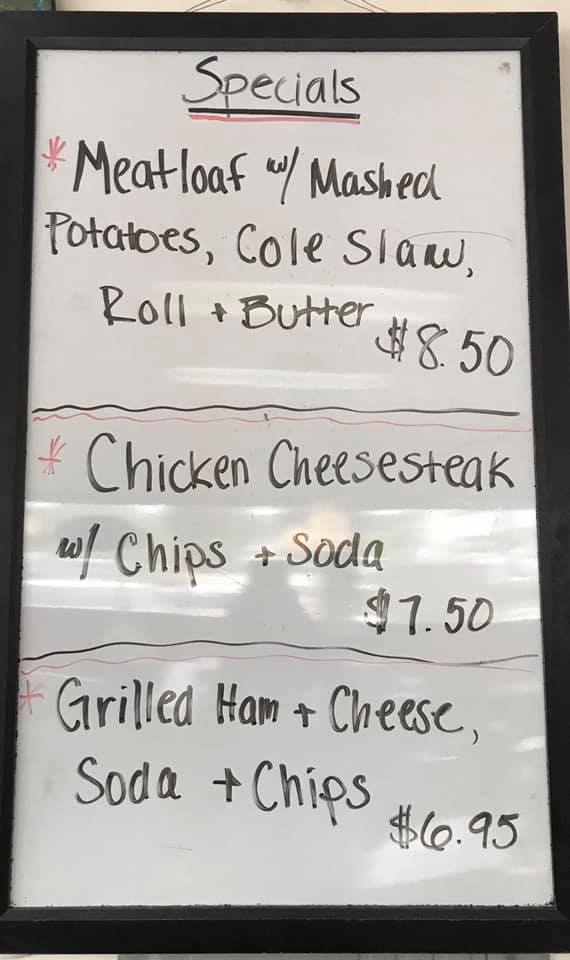 Specials
* Meatloaf w/ Mashed
Potatoes, Cole Slaw,
Roll + Butter
$8.50
* Chicken Cheesesteak
w/ Chips + Soda
$7.50
* Grilled Ham + Cheese,
Soda + Chips
$6.95